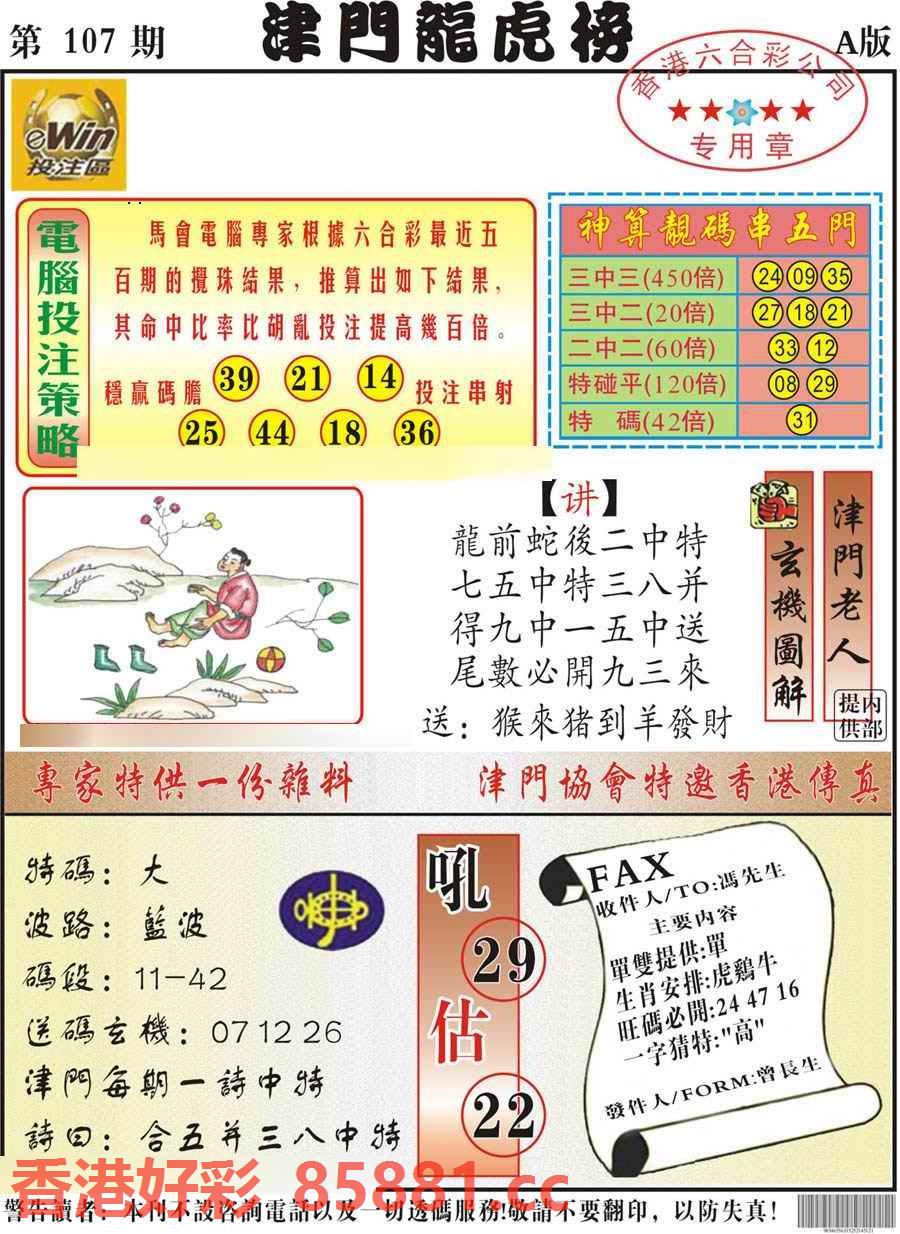 第 107 期
津門龍虎榜
A版
香港六合彩公司
专用章
eWin
投注區
電腦投注策略
馬會電腦專家根據六合彩最近五
百期的攪珠結果，推算出如下結果，
其命中比率比胡亂投注提高幾百倍。
穩贏碼膽 39 21 14 投注串射
25 44 18 36
神算靚碼串五門
三中三(450倍) 24 09 35
三中二(20倍) 27 18 21
二中二(60倍) 33 12
特碰平(120倍) 08 29
特 碼(42倍) 31
【讲】
龍前蛇後二中特
七五中特三八并
得九中一五中送
尾數必開九三來
送：猴來猪到羊發財
玄機圖解
津門老人
内部提供
專家特供一份雜料
津門協會特邀香港傳真
特碼：大
波路：藍波
碼段：11-42
送碼玄機：07 12 26
津門每期一詩中特
詩曰：合五并三八中特
吼
29
估
22
FAX
收件人/TO:馮先生
主要内容
單雙提供:單
生肖安排:虎鷄牛
旺碼必開:24 47 16
一字猜特:"高"
發件人/FORM:曾長生
香港好彩 85881.cc
警告讀者：本刊不設咨詢電話以及一切透碼服務!敬請不要翻印，以防失真!